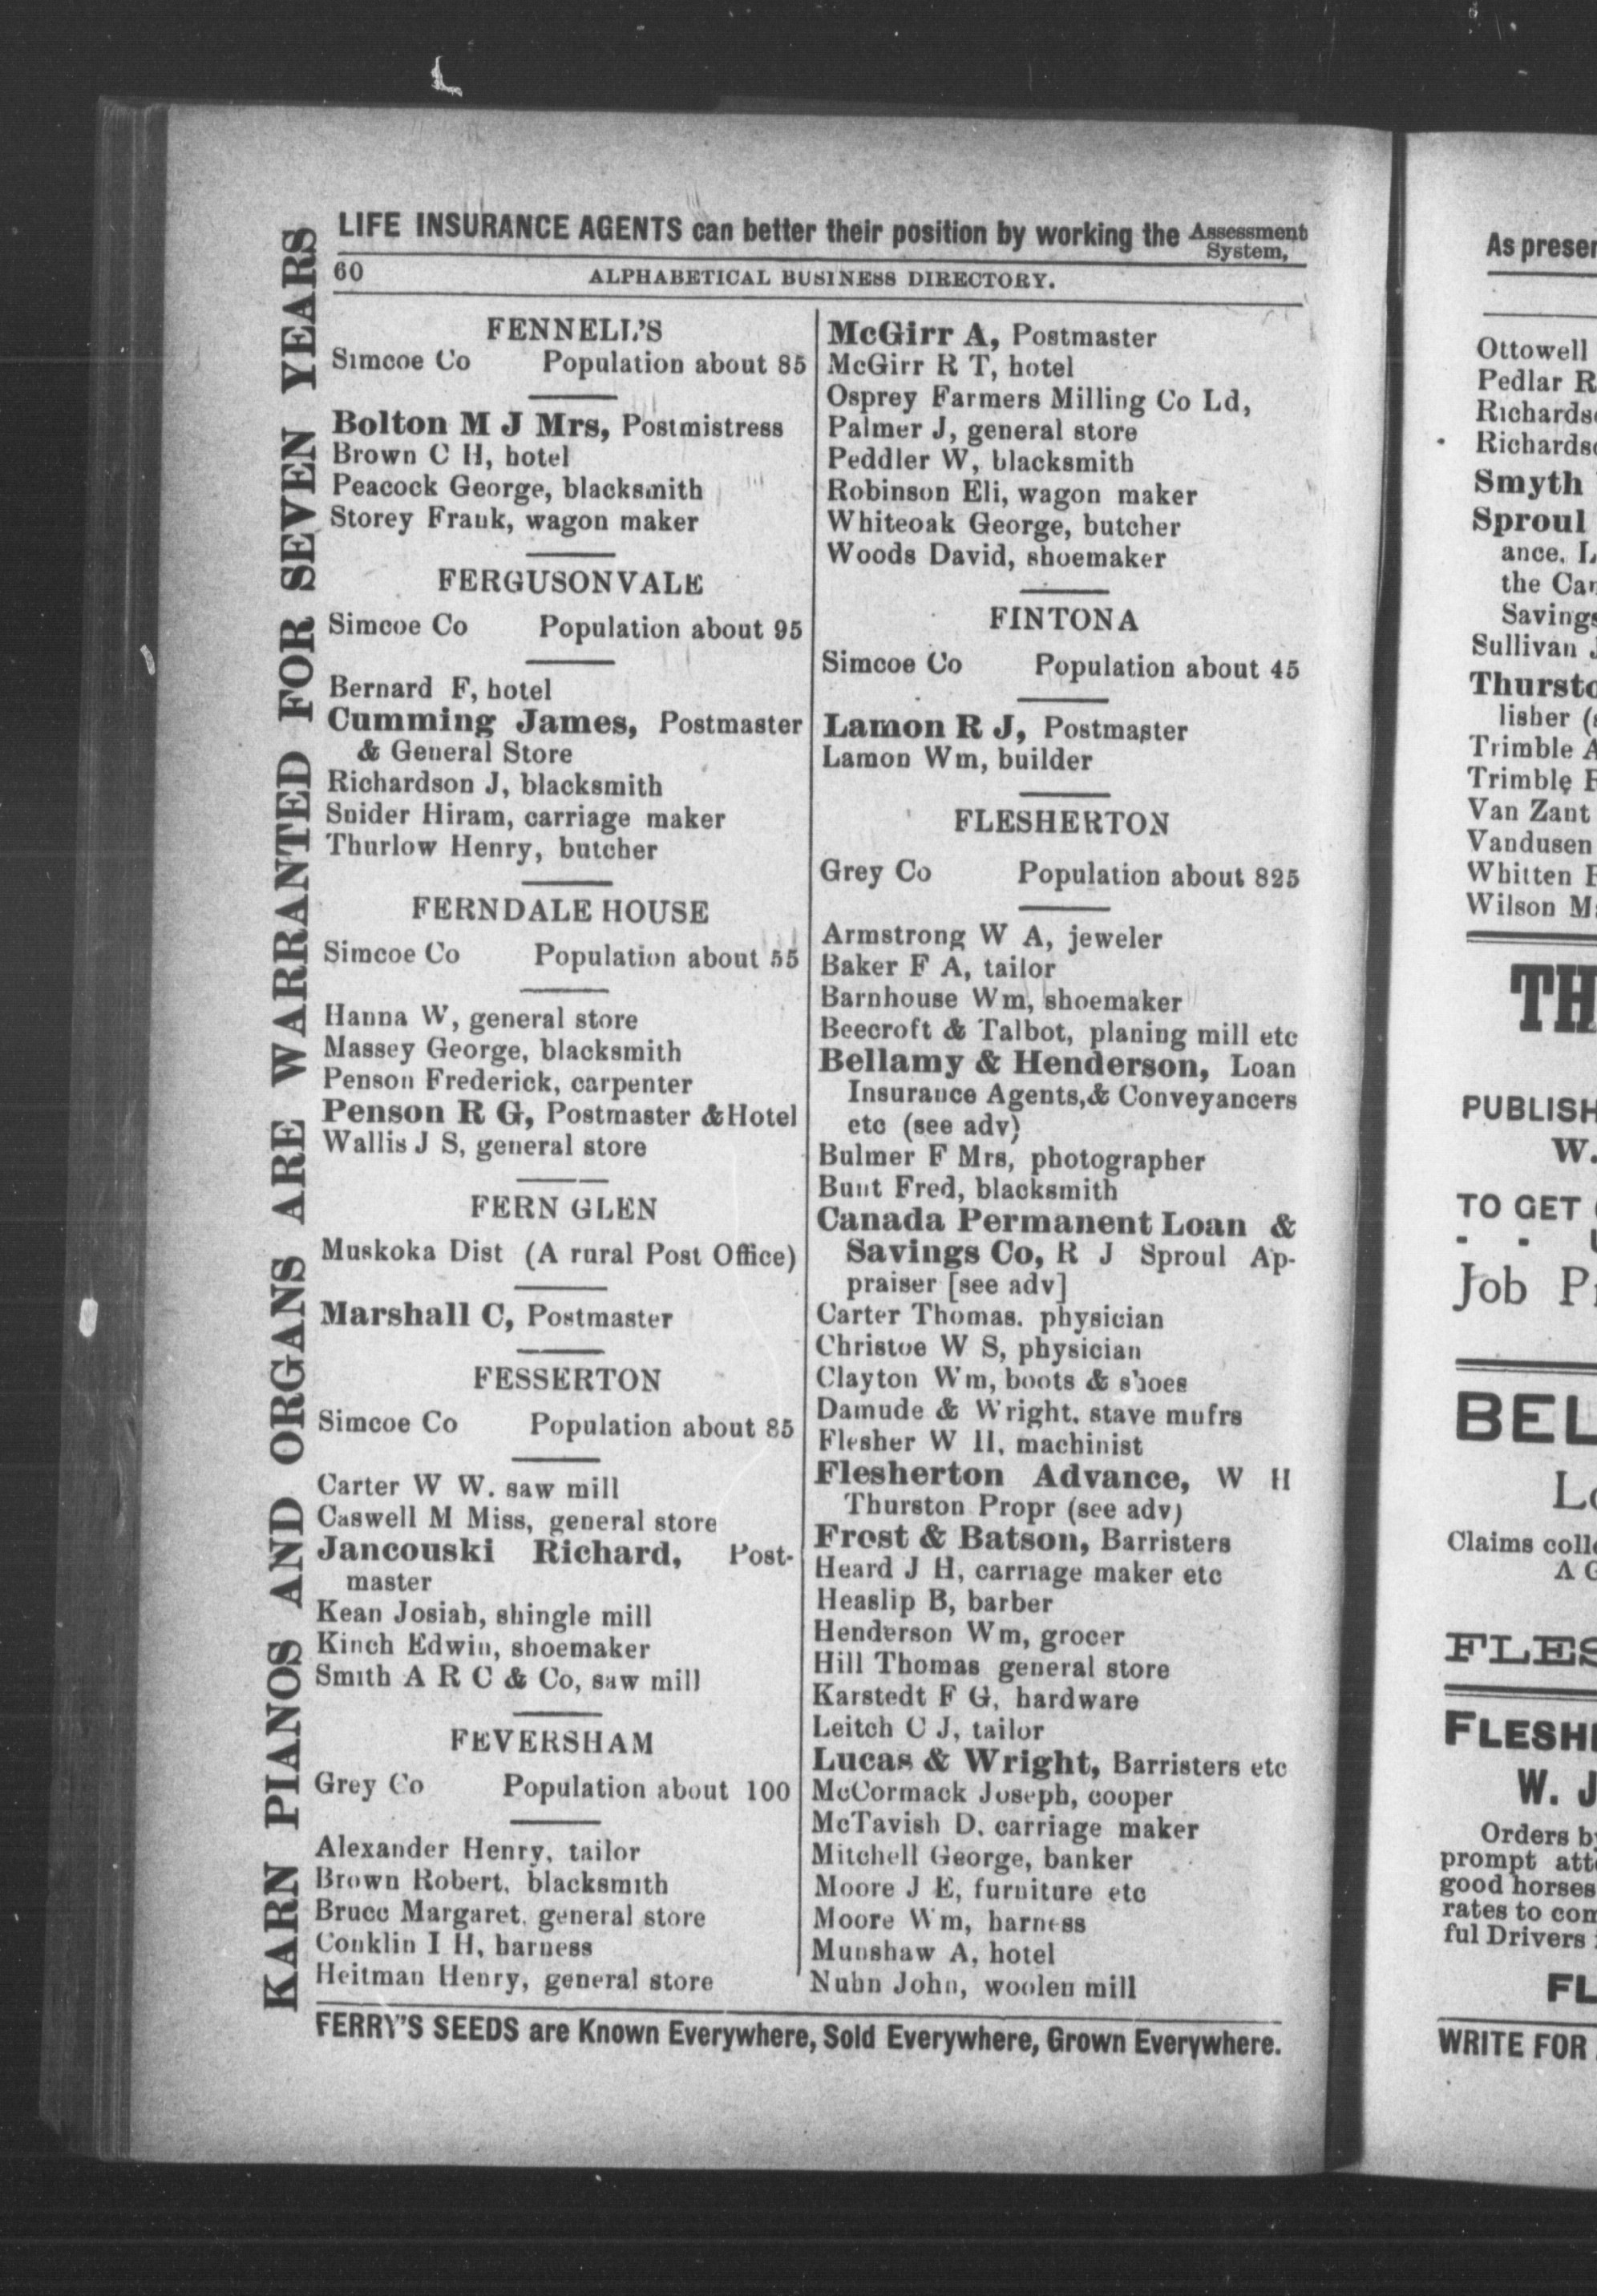 LIFE INSURANCE AGENTS can better their position by working the Assessment System,
60 ALPHABETICAL BUSINESS DIRECTORY.
KARN PIANOS AND ORGANS ARE WARRANTED FOR SEVEN YEARS
FENNELL'S
Simcoe Co Population about 85
Bolton M J Mrs, Postmistress
Brown C H, hotel
Peacock George, blacksmith
Storey Frank, wagon maker
FERGUSONVALE
Simcoe Co Population about 95
Bernard F, hotel
Cumming James, Postmaster
& General Store
Richardson J, blacksmith
Snider Hiram, carriage maker
Thurlow Henry, butcher
FERNDALE HOUSE
Simcoe Co Population about 55
Hanna W, general store
Massey George, blacksmith
Penson Frederick, carpenter
Penson R G, Postmaster & Hotel
Wallis J S, general store
FERN GLEN
Muskoka Dist (A rural Post Office)
Marshall C, Postmaster
FESSERTON
Simcoe Co Population about 85
Carter W W. saw mill
Caswell M Miss, general store
Jancouski Richard, Post-
master
Kean Josiah, shingle mill
Kinch Edwin, shoemaker
Smith A R C & Co, saw mill
FEVERSHAM
Grey Co Population about 100
Alexander Henry, tailor
Brown Robert, blacksmith
Bruce Margaret, general store
Conklin I H, harness
Heitman Henry, general store
McGirr A, Postmaster
McGirr R T, hotel
Osprey Farmers Milling Co Ld,
Palmer J, general store
Peddler W, blacksmith
Robinson Eli, wagon maker
Whiteoak George, butcher
Woods David, shoemaker
FINTONA
Simcoe Co Population about 45
Lamon R J, Postmaster
Lamon Wm, builder
FLESHERTON
Grey Co Population about 825
Armstrong W A, jeweler
Baker F A, tailor
Barnhouse Wm, shoemaker
Beecroft & Talbot, planing mill etc
Bellamy & Henderson, Loan
Insurance Agents, & Conveyancers
etc (see adv)
Bulmer F Mrs, photographer
Bunt Fred, blacksmith
Canada Permanent Loan &
Savings Co, R J Sproul Ap-
praiser [see adv]
Carter Thomas. physician
Christoe W S, physician
Clayton Wm, boots & shoes
Damude & Wright, stave mnfrs
Flesher W H, machinist
Flesherton Advance, W H
Thurston Propr (see adv)
Frost & Batson, Barristers
Heard J H, carriage maker etc
Heaslip B, barber
Henderson Wm, grocer
Hill Thomas general store
Karstedt F G, hardware
Leitch C J, tailor
Lucas & Wright, Barristers etc
McCormack Joseph, cooper
McTavish D. carriage maker
Mitchell George, banker
Moore J E, furniture etc
Moore Wm, harness
Munshaw A, hotel
Nuhn John, woolen mill
FERRY'S SEEDS are Known Everywhere, Sold Everywhere, Grown Everywhere.
As
Ottowell
Pedlar R
Smyth
Sproul
ance.
the
Savings
Sullivan
lisher
Trimble
Trimble
Van Zant
Vandusen
Whitten
Wilson
W.
TO GET
Job
Claims
W. J
Orders
prompt
good horses
rates to
ful Drivers
WRITE FOR